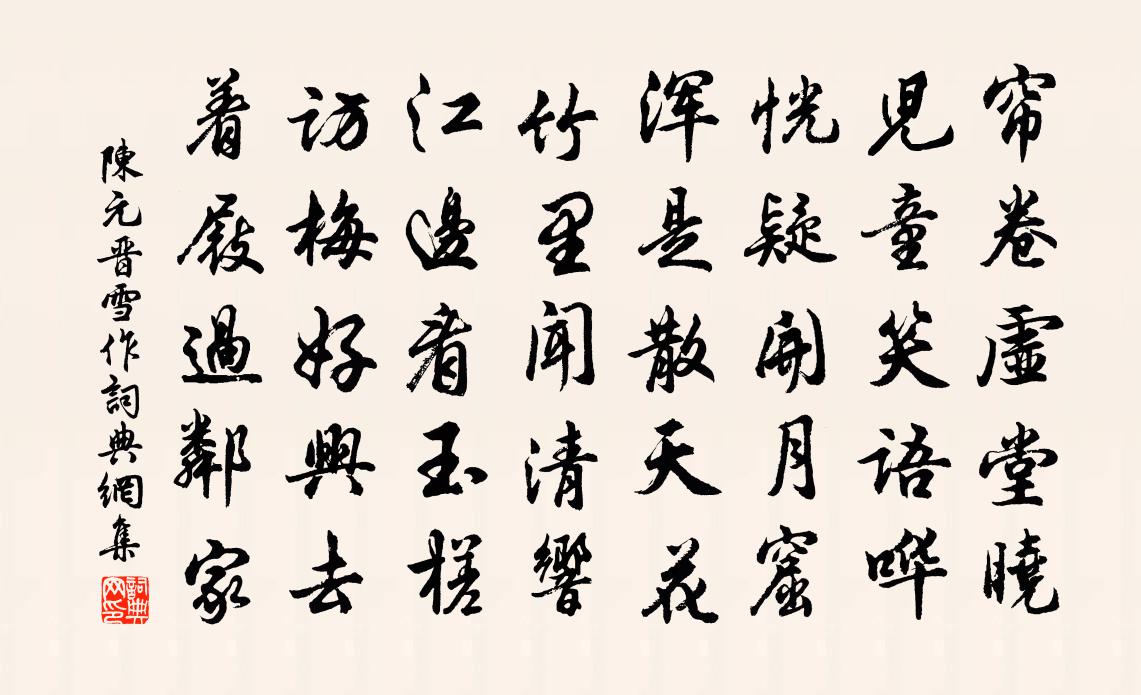 帘卷虛堂曉
児童笑语哗
恍疑開月窟
浑是散天花
竹里聞清響
江邊看玉槎
访梅好興去
着屐過鄰家
陳元晋雪作詞典網集
詞典網印